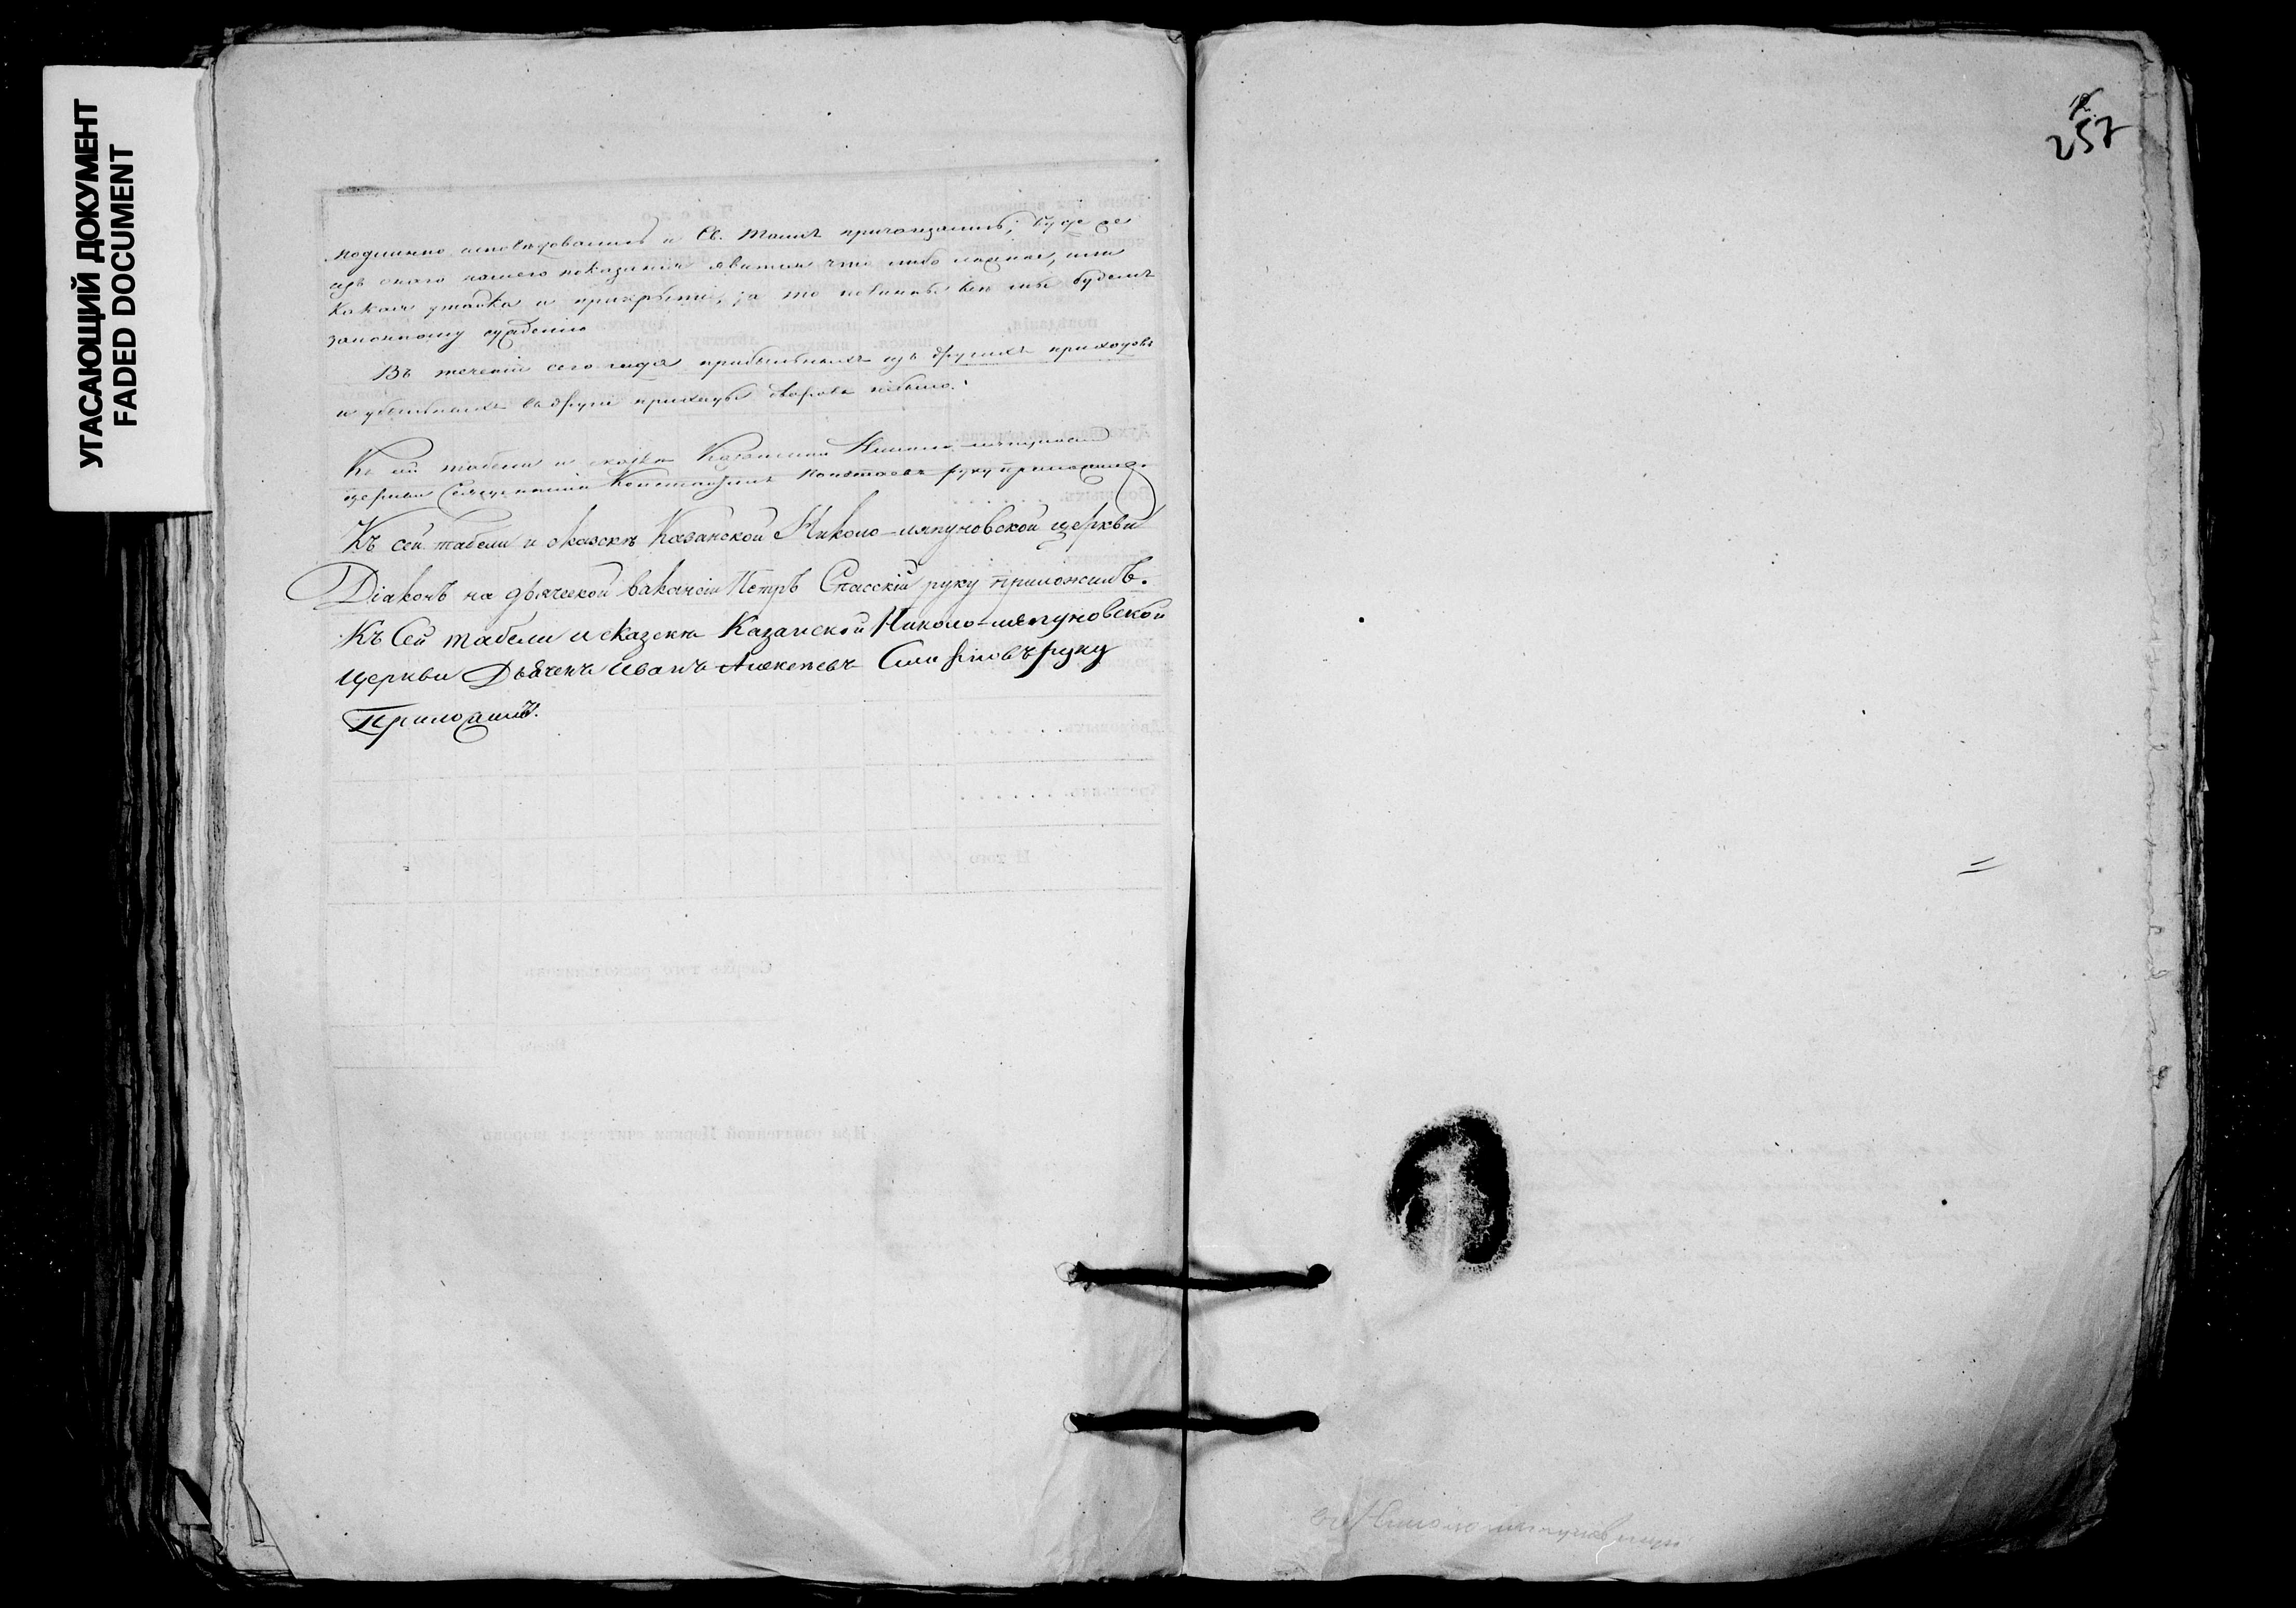 УГАСАЮЩИЙ ДОКУМЕНТ
FADED DOCUMENT
257
подлинно исповѣдовались и Св. Таинъ причащались; буде же
изъ сего нашего показанія явится что либо ложное, или
какая утайка и прикрытіе, за то повинны всѣ мы будемъ
законному сужденію
Въ теченіи сего года прибылыхъ изъ другихъ приходовъ
и убылыхъ въ другіе приходы дворовъ небыло.
Къ сей табели и сказкѣ Казанской Николо-ляпуновской
церкви Священникъ Константинъ руку приложилъ
Къ сей табели и сказкѣ Казанской Николо-ляпуновской церкви
Діаконъ на дьяческой вакансіи Петръ Спасскій руку приложилъ.
Къ Сей табели и сказкѣ Казанской Николо-ляпуновской
Церкви Дьячекъ Иванъ Алексеевъ руку
Приложилъ.
И того
Сверхъ того раскольниковъ
Всего
При означенной Церкви считается дворовъ